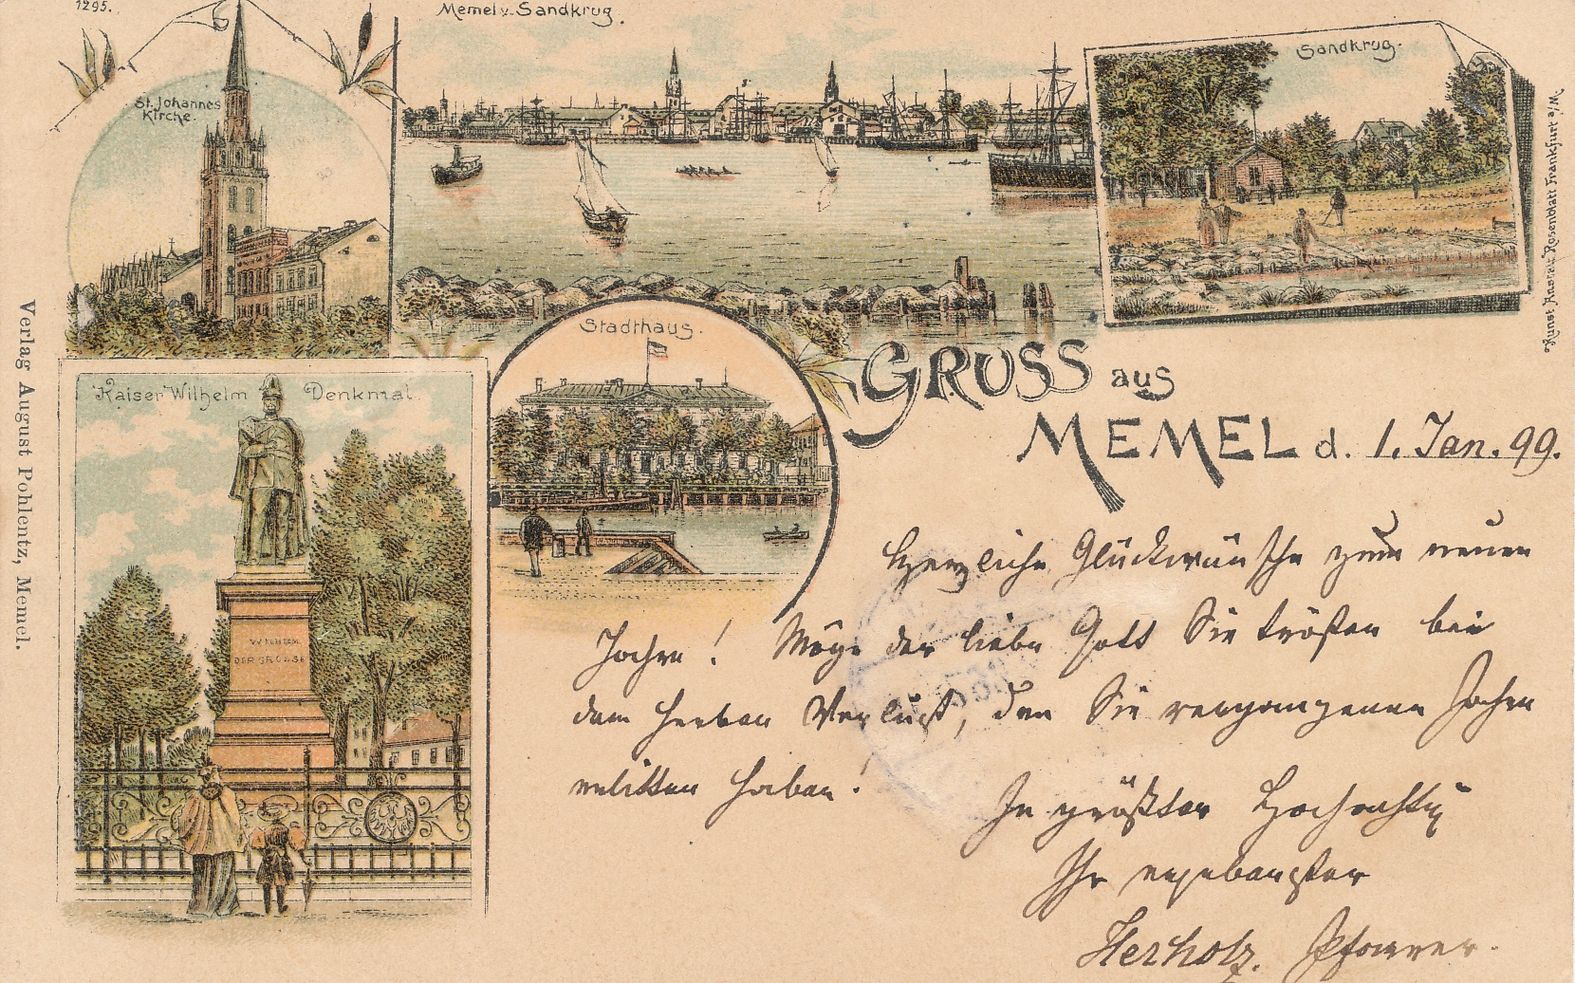 1295.
St. Johannes
Kirche.
Memel v. Sandkrug.
Sandkrug.
Kunst Anstalt Rosenblatt Frankfurt a/M.
Verlag August Pohlentz, Memel.
Kaiser Wilhelm Denkmal.
WILHELM
DER GROSSE
Stadthaus.
GRUSS aus
MEMEL d. 1. Jan. 99.
Herzliche Glückwünsche zum neuen
Jahre! Möge der liebe Gott Sie trösten bei
dem herben Verlust, den Sie vergangenen Jahre
erlitten haben!
In größter Hochachtg
Ihr ergebenster
Herholz. Pfarrer.